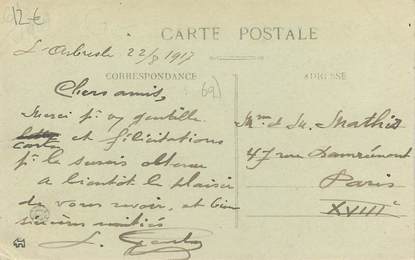 12 €
CARTE POSTALE
L'Arbresle 22/8 1917
CORRESPONDANCE
ADRESSE
(69)
Chers amis,
Merci pr vs gentille
carte et félicitations
pr le sursis obtenu
a bientôt le plaisir
de vous revoir, et bien
sincères amitiés
Mme & Mr. Mathis
47 rue Damrémont
Paris
XVIIIe